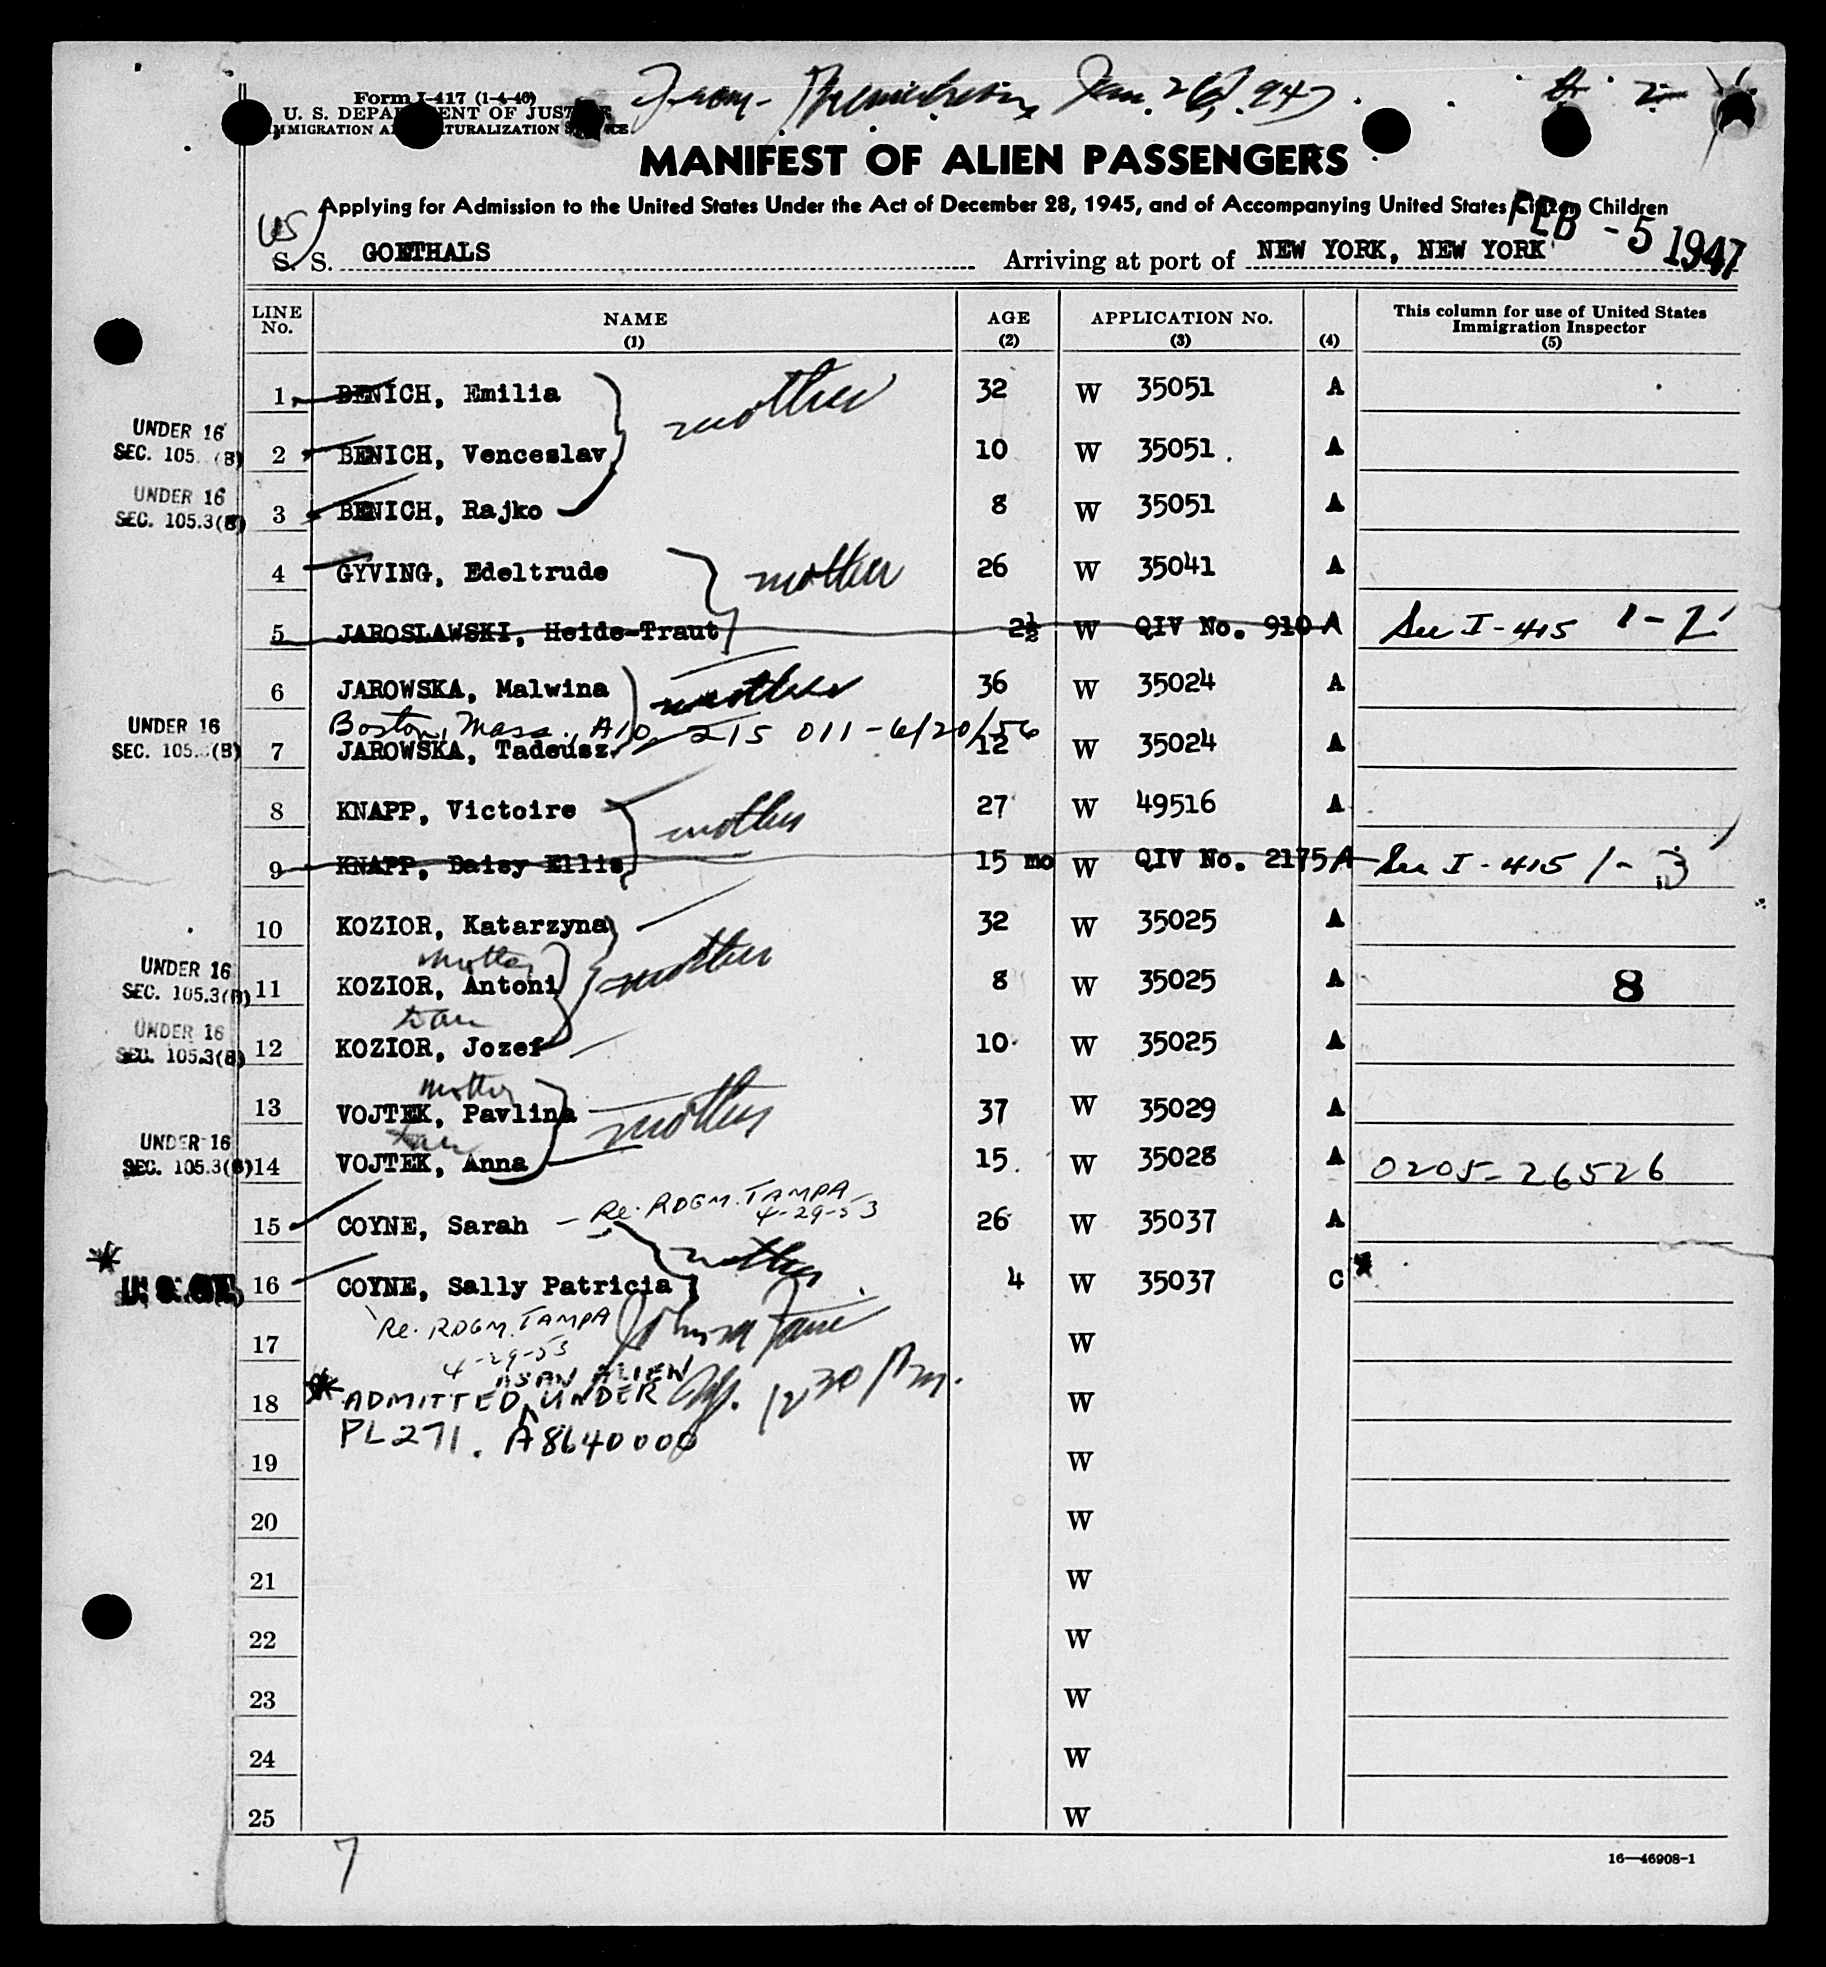 Form I-417 (1-4-46)
From Bremerhaven, Jan. 26, 1947
U. S. DEPARTMENT OF JUSTICE
IMMIGRATION AND NATURALIZATION SERVICE
MANIFEST OF ALIEN PASSENGERS
Applying for Admission to the United States Under the Act of December 28, 1945, and of Accompanying United States Citizen Children
FEB -5 1947
US
S. S. GOETHALS Arriving at port of NEW YORK, NEW YORK
LINE No. NAME (1) AGE (2) APPLICATION No. (3) (4) This column for use of United States Immigration Inspector (5)
1 BENICH, Emilia mother 32 W 35051 A
UNDER 16 SEC. 105. (B) 2 BENICH, Venceslav 10 W 35051. A
UNDER 16 SEC. 105.3(B) 3 BENICH, Rajko 8 W 35051 A
4 GYVING, Edeltrude mother 26 W 35041 A
5 JAROSLAWSKI, Heide-Traut 2½ W QIV No. 910 A See I-415 1-2
6 JAROWSKA, Malwina mother 36 W 35024 A
Boston, Mass., A10 215 011-6/20/56
UNDER 16 SEC. 105. (B) 7 JAROWSKA, Tadeusz 12 W 35024 A
8 KNAPP, Victoire mother 27 W 49516 A
9 KNAPP, Daisy Ellis 15 mo W QIV No. 2175 A See I-415 1-3
10 KOZIOR, Katarzyna 32 W 35025 A
mother mother
UNDER 16 SEC. 105.3(B) 11 KOZIOR, Antoni 8 W 35025 A 8
UNDER 16 SEC. 105.3(B) 12 KOZIOR, Jozef 10 W 35025 A
mother
13 VOJTEK, Pavlina mother 37 W 35029 A
UNDER 16 SEC. 105.3(B) 14 VOJTEK, Anna 15. W 35028 A 0205-26526
15 COYNE, Sarah - Re. RDGM. TAMPA 4-29-53 26 W 35037 A
mother
* 16 COYNE, Sally Patricia 4 W 35037 C *
Re. RDGM. TAMPA
4-29-53
17 W
AS AN ALIEN
18 * ADMITTED UNDER 12 30 Pm. W
PL271. A8640000
19 W
20 W
21 W
22 W
23 W
24 W
25 W
7
16—46908-1